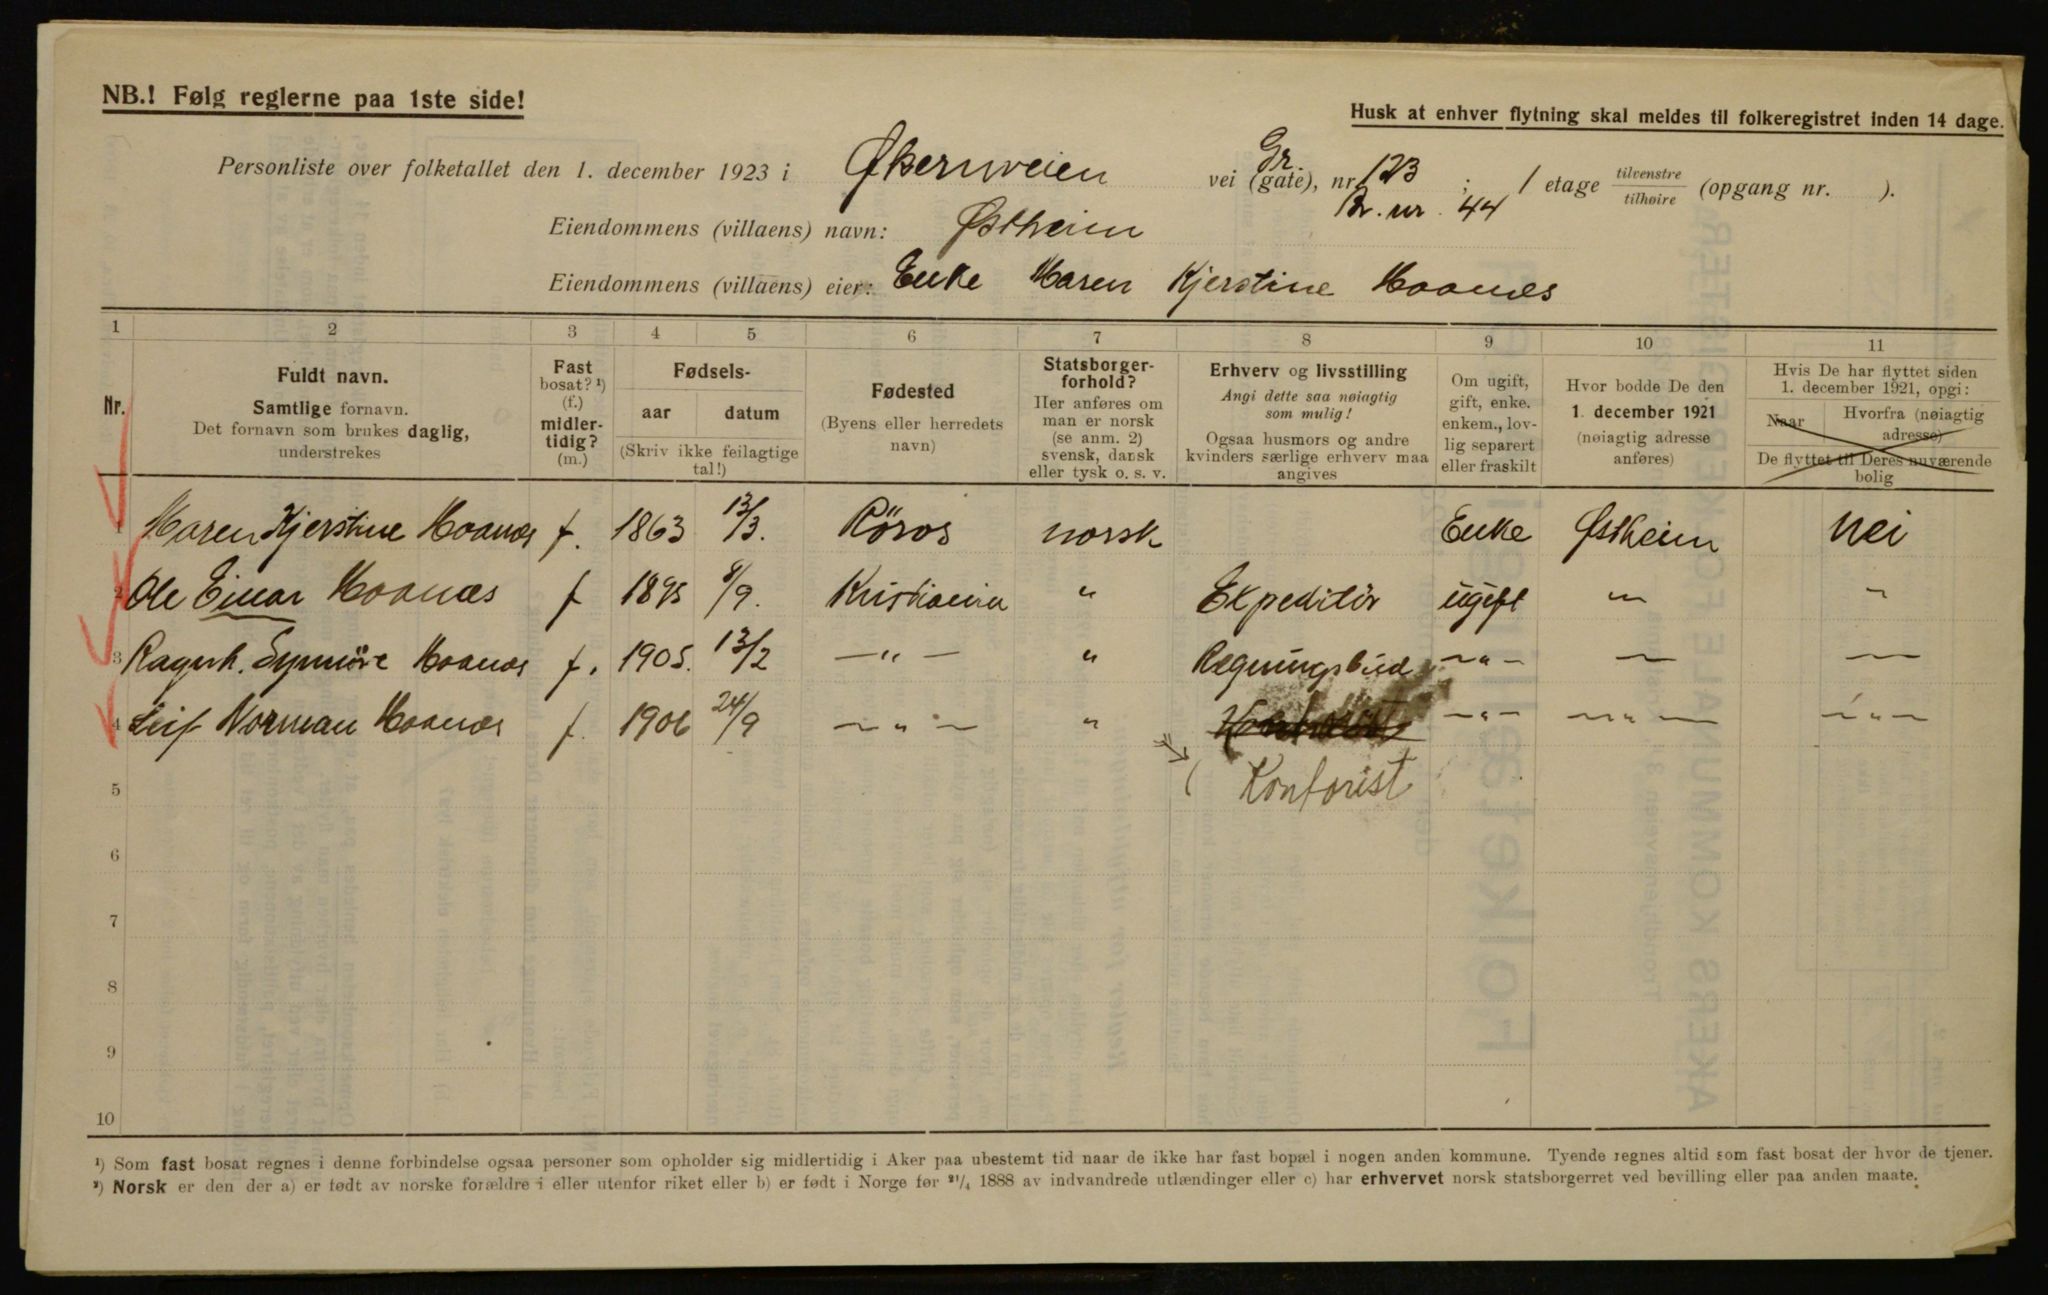 NB.! Følg reglerne paa 1ste side!
Husk at enhver flytning skal meldes til folkeregistret inden 14 dage.
Personliste over folketallet den 1. december 1923 i Økernveien vei (gate), nr. Gr. 123 ; 1 etage tilvenstre/tilhøire (opgang nr. ).
Br. nr. 44
Eiendommens (villaens) navn: Østheim
Eiendommens (villaens) eier: Enke Maren Kjerstine Moanæs
1 2 3 4 5 6 7 8 9 10 11
Nr.
Fuldt navn.
Samtlige fornavn.
Det fornavn som brukes daglig,
understrekes
Fast
bosat? ¹)
(f.)
midler-
tidig?
(m.)
Fødsels-
aar datum
(Skriv ikke feilagtige
tal!)
Fødested
(Byens eller herredets
navn)
Statsborger-
forhold?
Her anføres om
man er norsk
(se anm. 2)
svensk, dansk
eller tysk o. s. v.
Erhverv og livsstilling
Angi dette saa nøiagtig
som mulig!
Ogsaa husmors og andre
kvinders særlige erhverv maa
angives
Om ugift,
gift, enke.
enkem., lov-
lig separert
eller fraskilt
Hvor bodde De den
1. december 1921
(nøiagtig adresse
anføres)
Hvis De har flyttet siden
1. december 1921, opgi:
Naar Hvorfra (nøiagtig
adresse)
De flyttet til Deres nuværende
bolig
1 Maren Kjerstine Moanæs f. 1863 13/3. Röros norsk Enke Østheim Nei
2 Ole Einar Moanæs f 1895 8/9. Kristiania " Expeditör ugift " "
3 Ragnh. Synnöve Moanæs f. 1905. 13/2 — " — " Regningsbud — " — — —
4 Leif Norman Moanæs f. 1906 24/9 — " — " — " — — " — — " —
Kontorist
5
6
7
8
9
10
¹) Som fast bosat regnes i denne forbindelse ogsaa personer som opholder sig midlertidig i Aker paa ubestemt tid naar de ikke har fast bopæl i nogen anden kommune. Tyende regnes altid som fast bosat der hvor de tjener.
²) Norsk er den der a) er født av norske forældre i eller utenfor riket eller b) er født i Norge før ²¹/₄ 1888 av indvandrede utlændinger eller c) har erhvervet norsk statsborgerret ved bevilling eller paa anden maate.